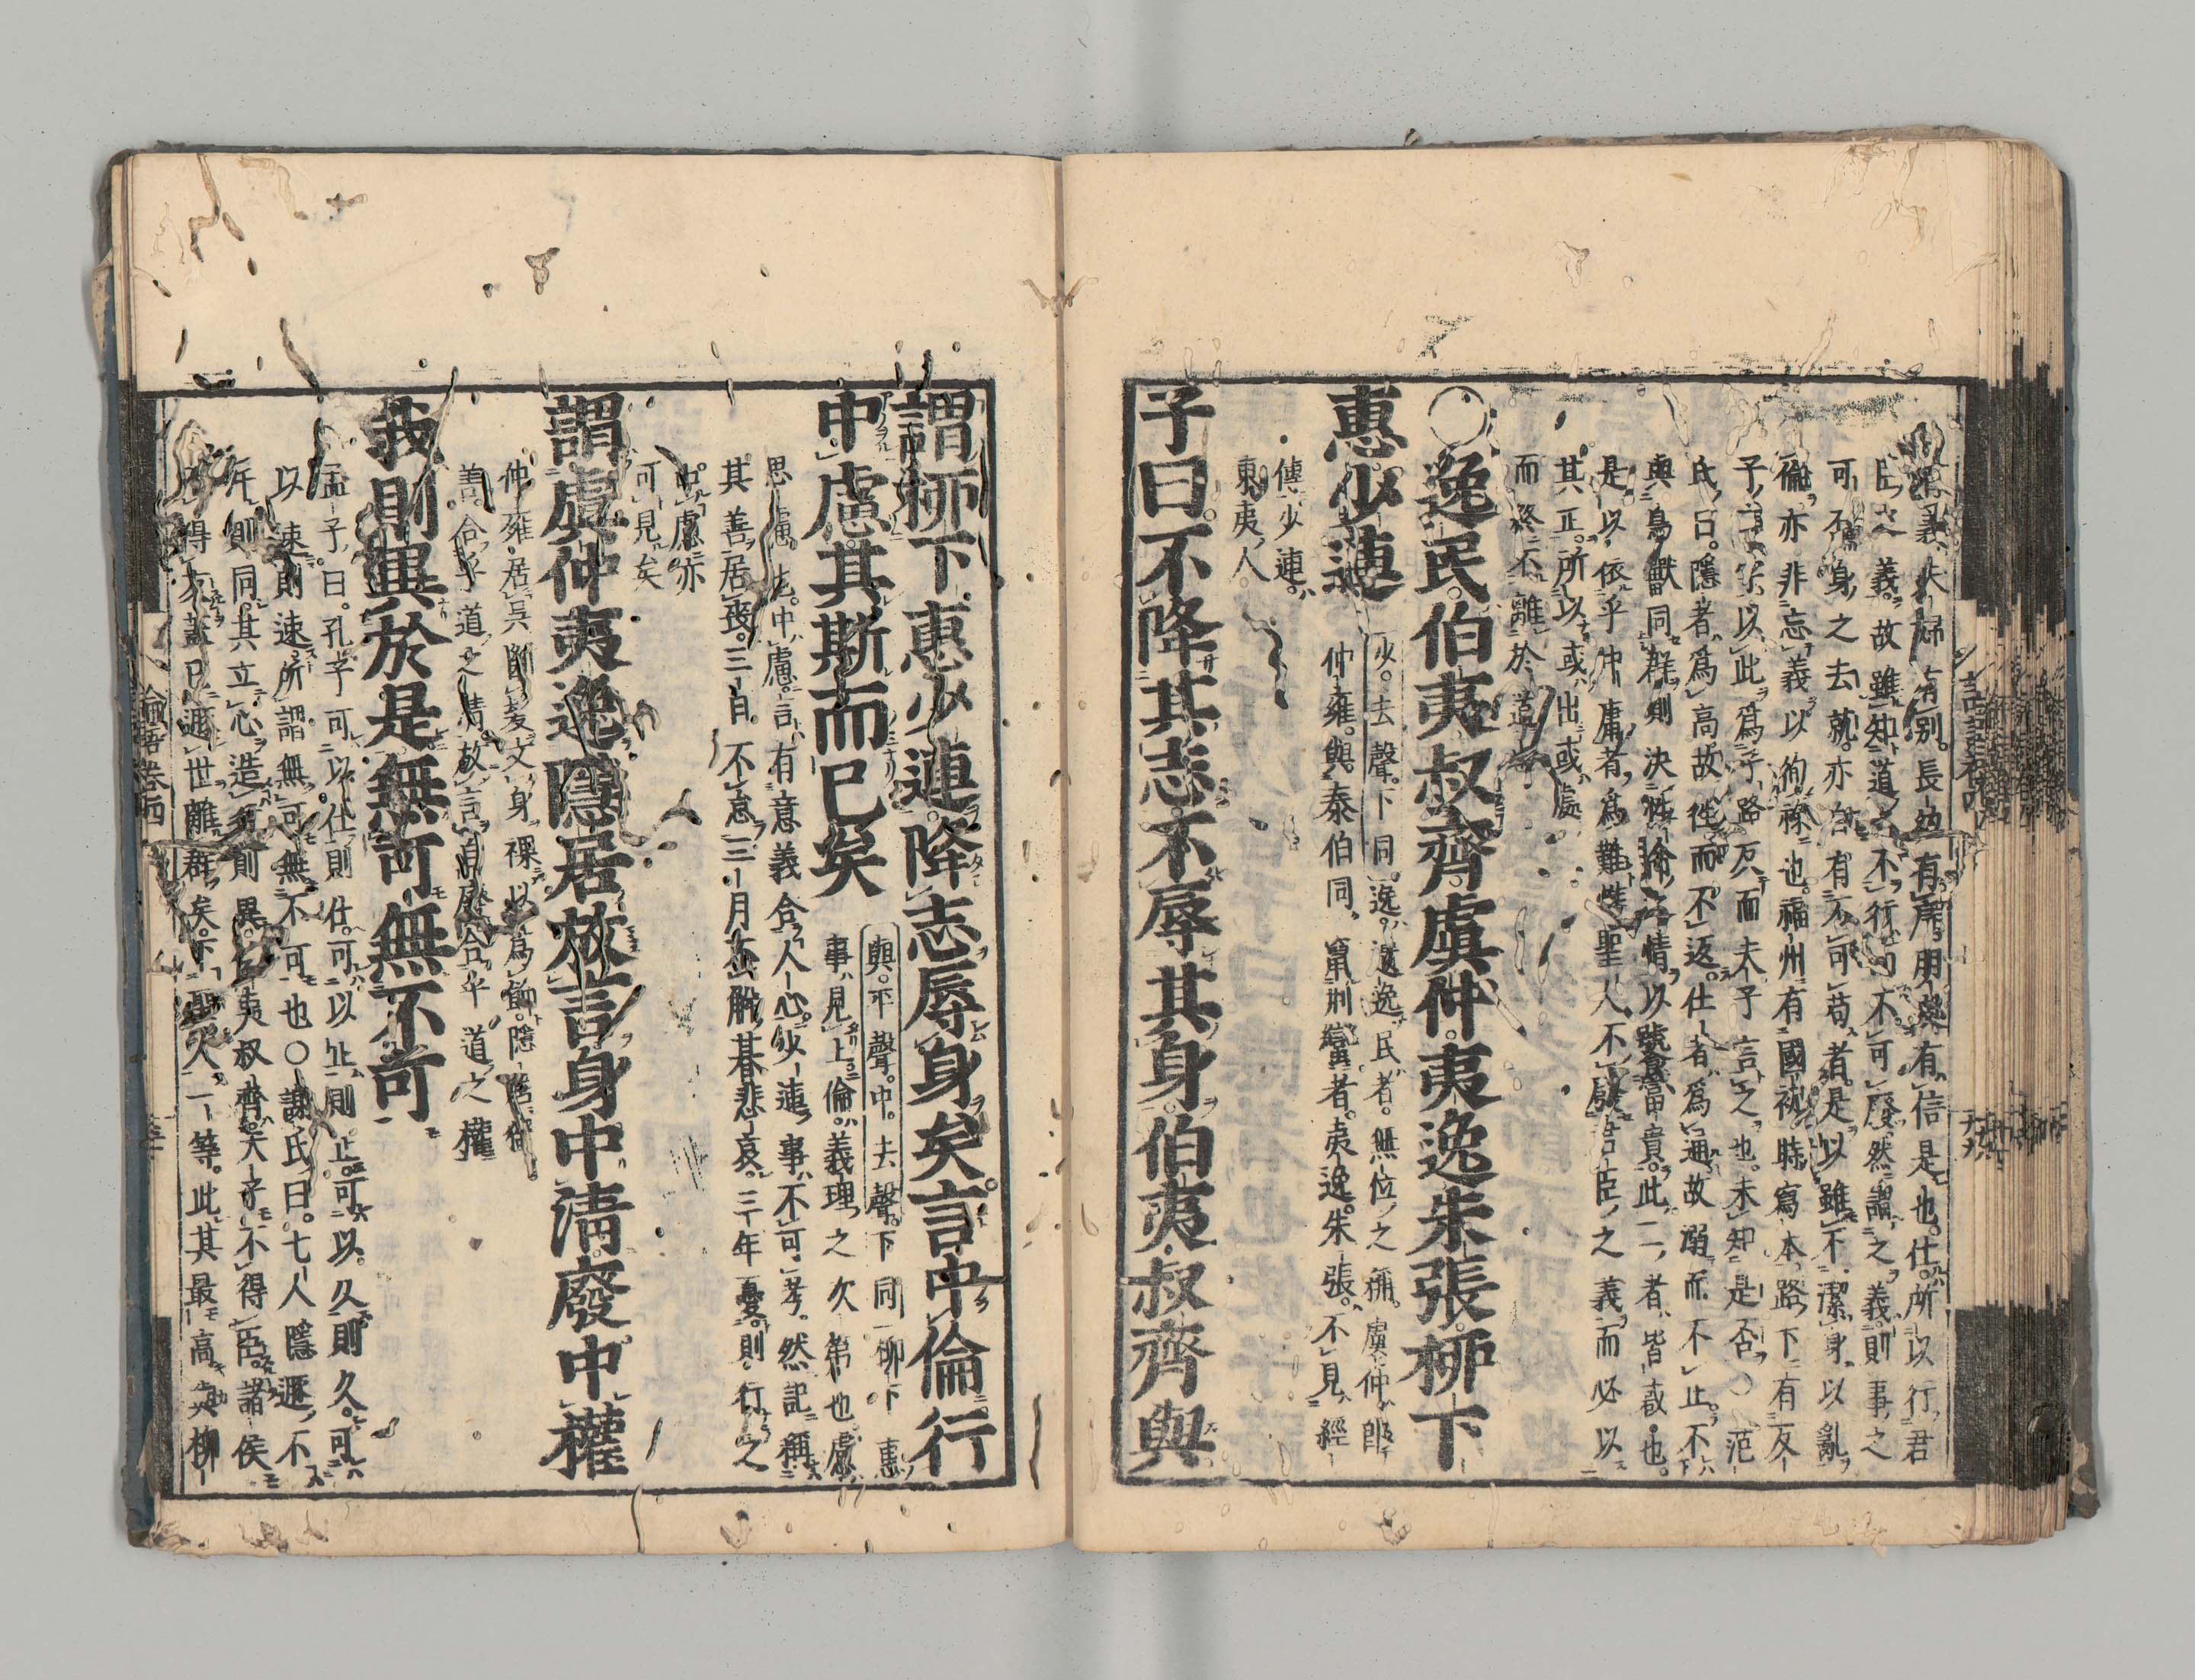 臣之義故雖知道之不行而不可廢然謂之義則事之
可否身之去就亦自有不可苟者是以雖不潔身以亂
倫亦非忘義以徇祿也福州有國初時寫本路下有反
子二字以此爲子路反而夫子言之也未知是否○范
氏曰隱者爲高故徃而不返仕者爲通故溺而不止不
與鳥獸同群則決性命之情以饕富貴此二者皆惑也
是以依乎中庸者爲難惟聖人不廢君臣之義而必以
其正所以或出或處
而終不離於道
○逸民伯夷叔齊虞仲夷逸朱張柳下
惠少連
少去聲下同逸遺逸民者無位之稱虞仲卽
仲雍與泰伯同竄荆蠻者夷逸朱張不見經
傳少連
東夷人
子曰不降其志不辱其身伯夷叔齊與
謂柳下惠少連降志辱身矣言中倫行
中慮其斯而已矣
與平聲中去聲下同柳下惠
事見上倫義理之次第也慮
思慮也中慮言有意義合人心少連事不可考然記稱
其善居喪三日不怠三月不懈朞悲哀三年憂則行之
中慮亦
可見矣
謂虞仲夷逸隱居放言身中淸廢中權
仲雍居吳斷髮文身裸以爲飾隱居獨
善合乎道之淸放言自廢合乎道之權
我則異於是無可無不可
孟子曰孔子可以仕則仕可以止則止可以久則久可
以速則速所謂無可無不可也○謝氏曰七人隱遯不
汙則同其立心造行則異伯夷叔齊天子不得臣諸侯
不得友蓋已遯世離群矣下聖人一等此其最高與柳
論語卷四